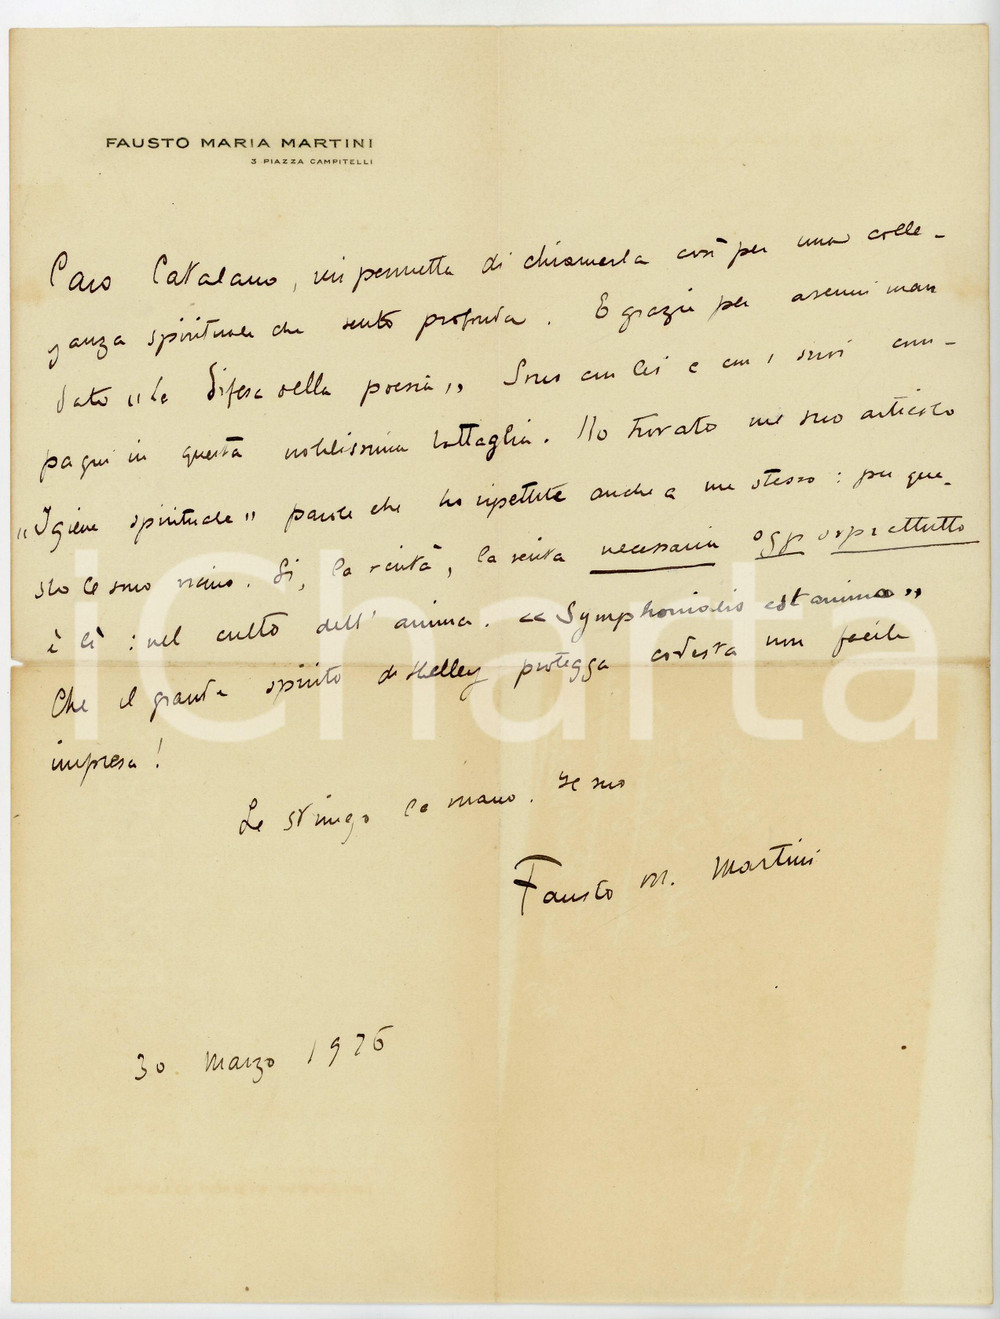 FAUSTO MARIA MARTINI
3 PIAZZA CAMPITELLI
Caro Catalano, mi permetta di chiamarla così per una colle-
ganza spirituale che sento profonda. E grazie per avermi man
dato "La Difesa della poesia" Sono con Lei e con i suoi com-
pagni in questa nobilissima battaglia. Ho trovato nel suo articolo
"Igiene spirituale" parole che ho ripetute anche a me stesso: per que-
sto le sono vicino. Sì, la verità, la verità necessaria oggi soprattutto
è lì: nel culto dell'anima. «Symphonialis est anima»
Che il grande spirito di Shelley protegga codesta non facile
impresa!
Le stringo la mano.
Fausto M. Martini
30 Marzo 1926
iCharta